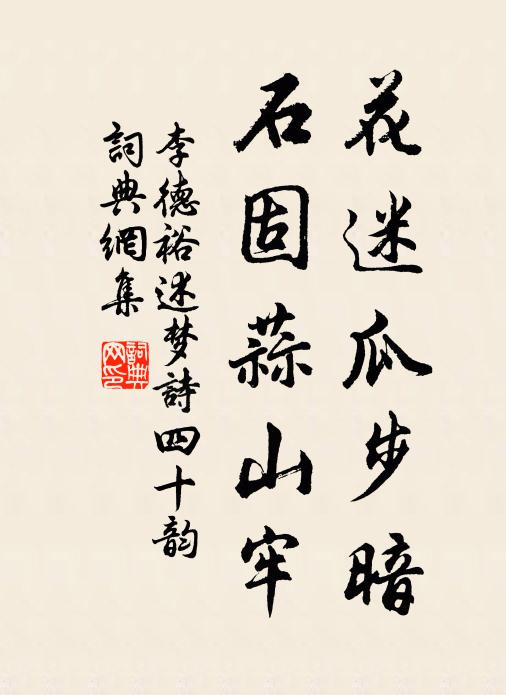 花迷瓜步暗
石固蒜山牢
李德裕述梦詩四十韵
詞典網集
詞典網印